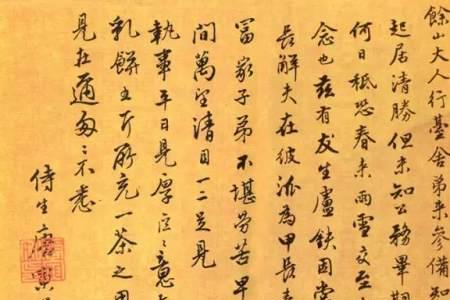 餘山大人行臺舍弟來參備知
起居清勝但未知公務畢期
何日祗恐春来雨雪交至
念也茲有友生盧鎮因當
長解夫在彼派為甲長
冨家子弟不堪勞苦早
間萬望清目一二足見
執事平日見厚區〻意
乳餅五斤所充一茶之用
見在邇匆〻不悉
侍生唐寅